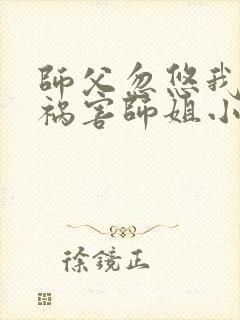 師父忽悠我
祸害師姐小
徐鏡正